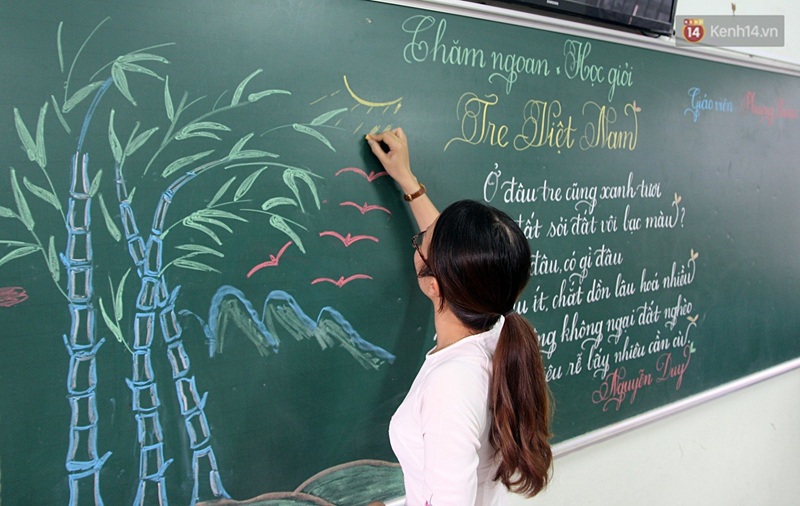 Kenh14.vn
Chăm ngoan. Học giỏi
Tre Việt Nam
Giáo viên:
Ở đâu tre cũng xanh tươi
đất sỏi đất vôi bạc màu?
đâu, có gì đâu
ít, chất dồn lâu hoá nhiều
không ngại đất nghèo
rễ bấy nhiêu cần cù.
Nguyễn Duy